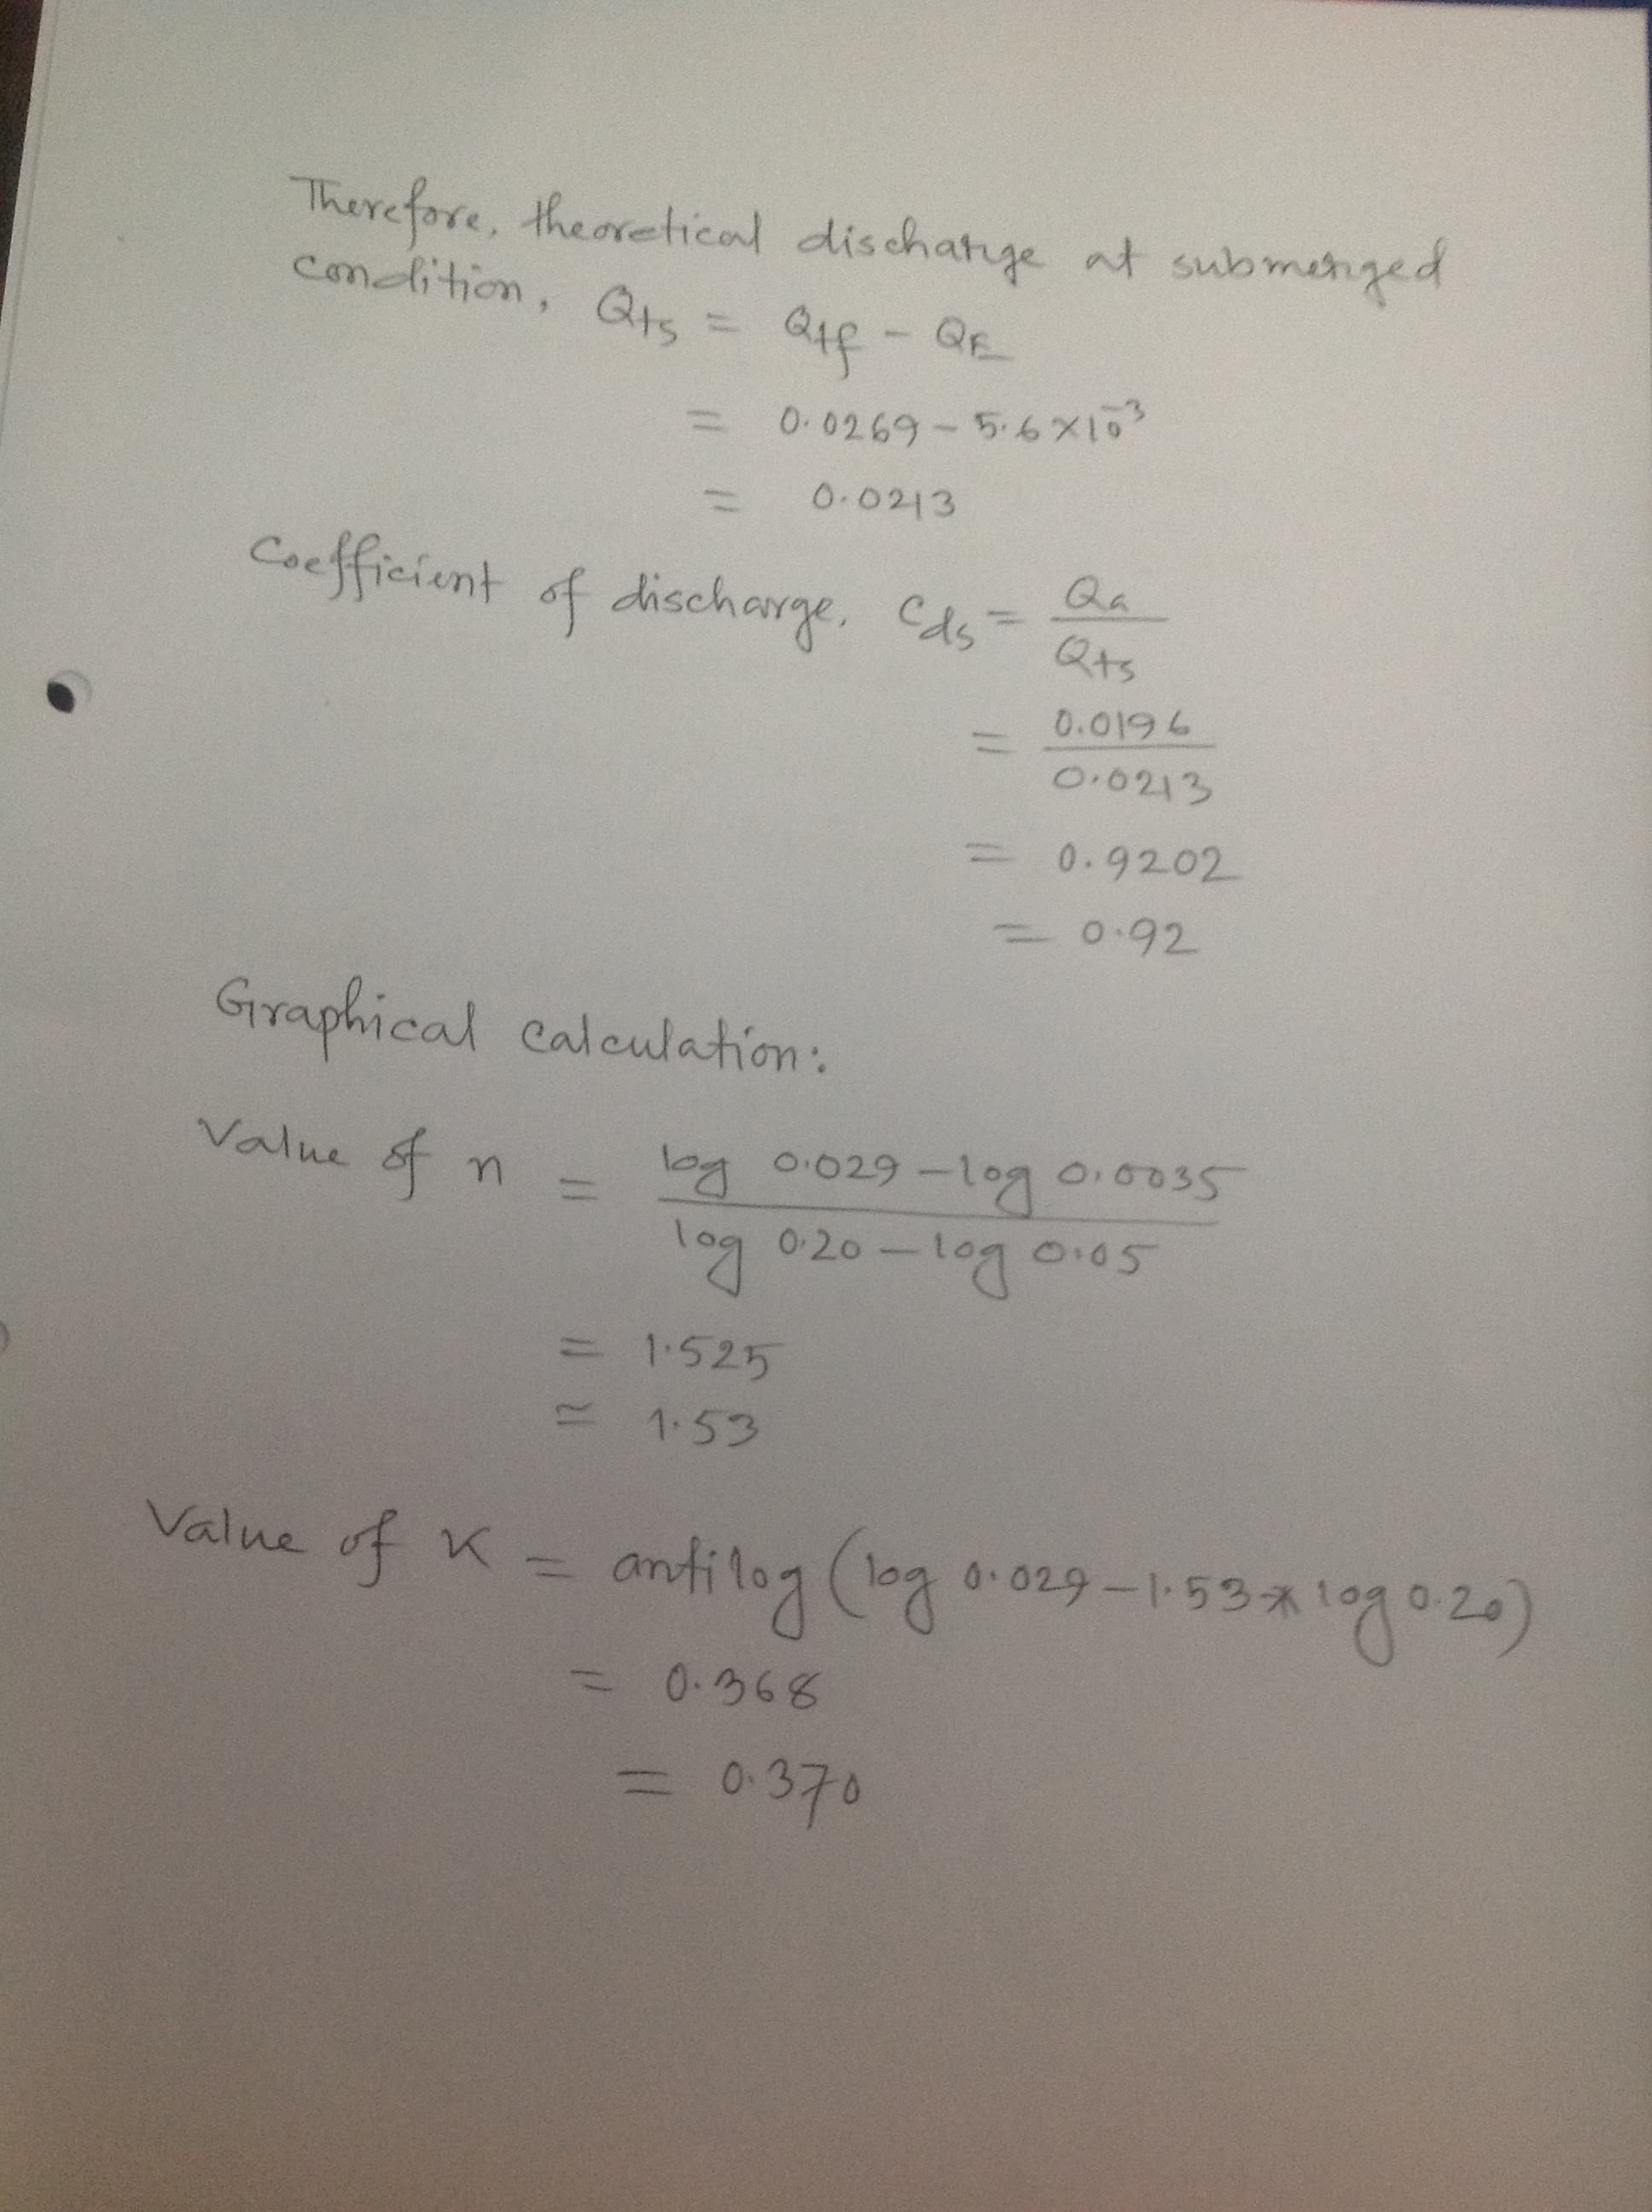 Therefore, theoretical discharge at submerged
condition, Qts = Qtf - QE
= 0.0269 - 5.6 × 10⁻³
= 0.0213
Coefficient of discharge, Cds = Qa / Qts
= 0.0196 / 0.0213
= 0.9202
= 0.92
Graphical calculation:
Value of n = (log 0.029 - log 0.0035) / (log 0.20 - log 0.05)
= 1.525
≃ 1.53
Value of K = antilog (log 0.029 - 1.53 * log 0.20)
= 0.368
= 0.370